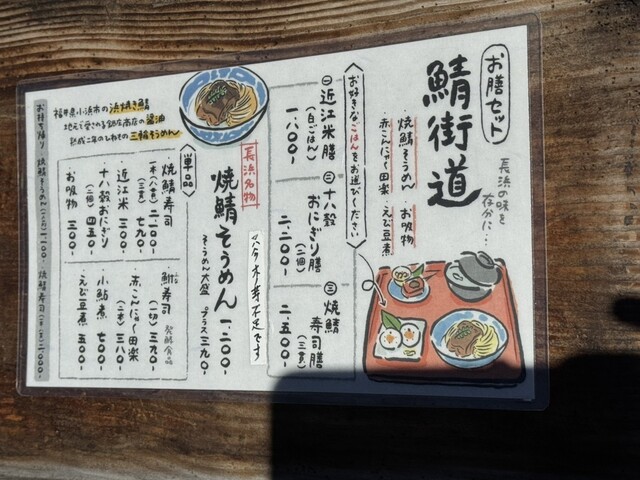 お膳セット
鯖街道
長浜の味を
存分に…
・焼鯖そうめん ・お吸物
・赤こんにゃく田楽 ・えび豆煮
〈お好きなごはんをお選びください〉
㊀近江米膳
(白ごはん)
一、八〇〇-
㊁十八穀
おにぎり膳
(二個)
二、二〇〇-
㊂焼鯖
寿司膳
(三貫)
二、五〇〇-
長浜名物
焼鯖そうめん 一、二〇〇-
そうめん大盛 プラス三九〇-
福井県小浜市の浜焼き鯖
地元で愛される鍋庄商店の醤油
熟成二年のひねもの三輪そうめん
〈単品〉
・焼鯖寿司
一本(八貫) 二、一〇〇-
(三貫) 七九〇-
・近江米 三〇〇-
・十八穀おにぎり
(二個) 四五〇-
・お吸物 三〇〇-
・鮒寿司 発酵食品
(一切) 三九〇-
・赤こんにゃく田楽
(二本) 三八〇-
・小鮎煮 七〇〇-
・えび豆煮 五〇〇-
お持ち帰り 焼鯖そうめん 一、一〇〇- 焼鯖寿司(一本) 二、〇〇〇-